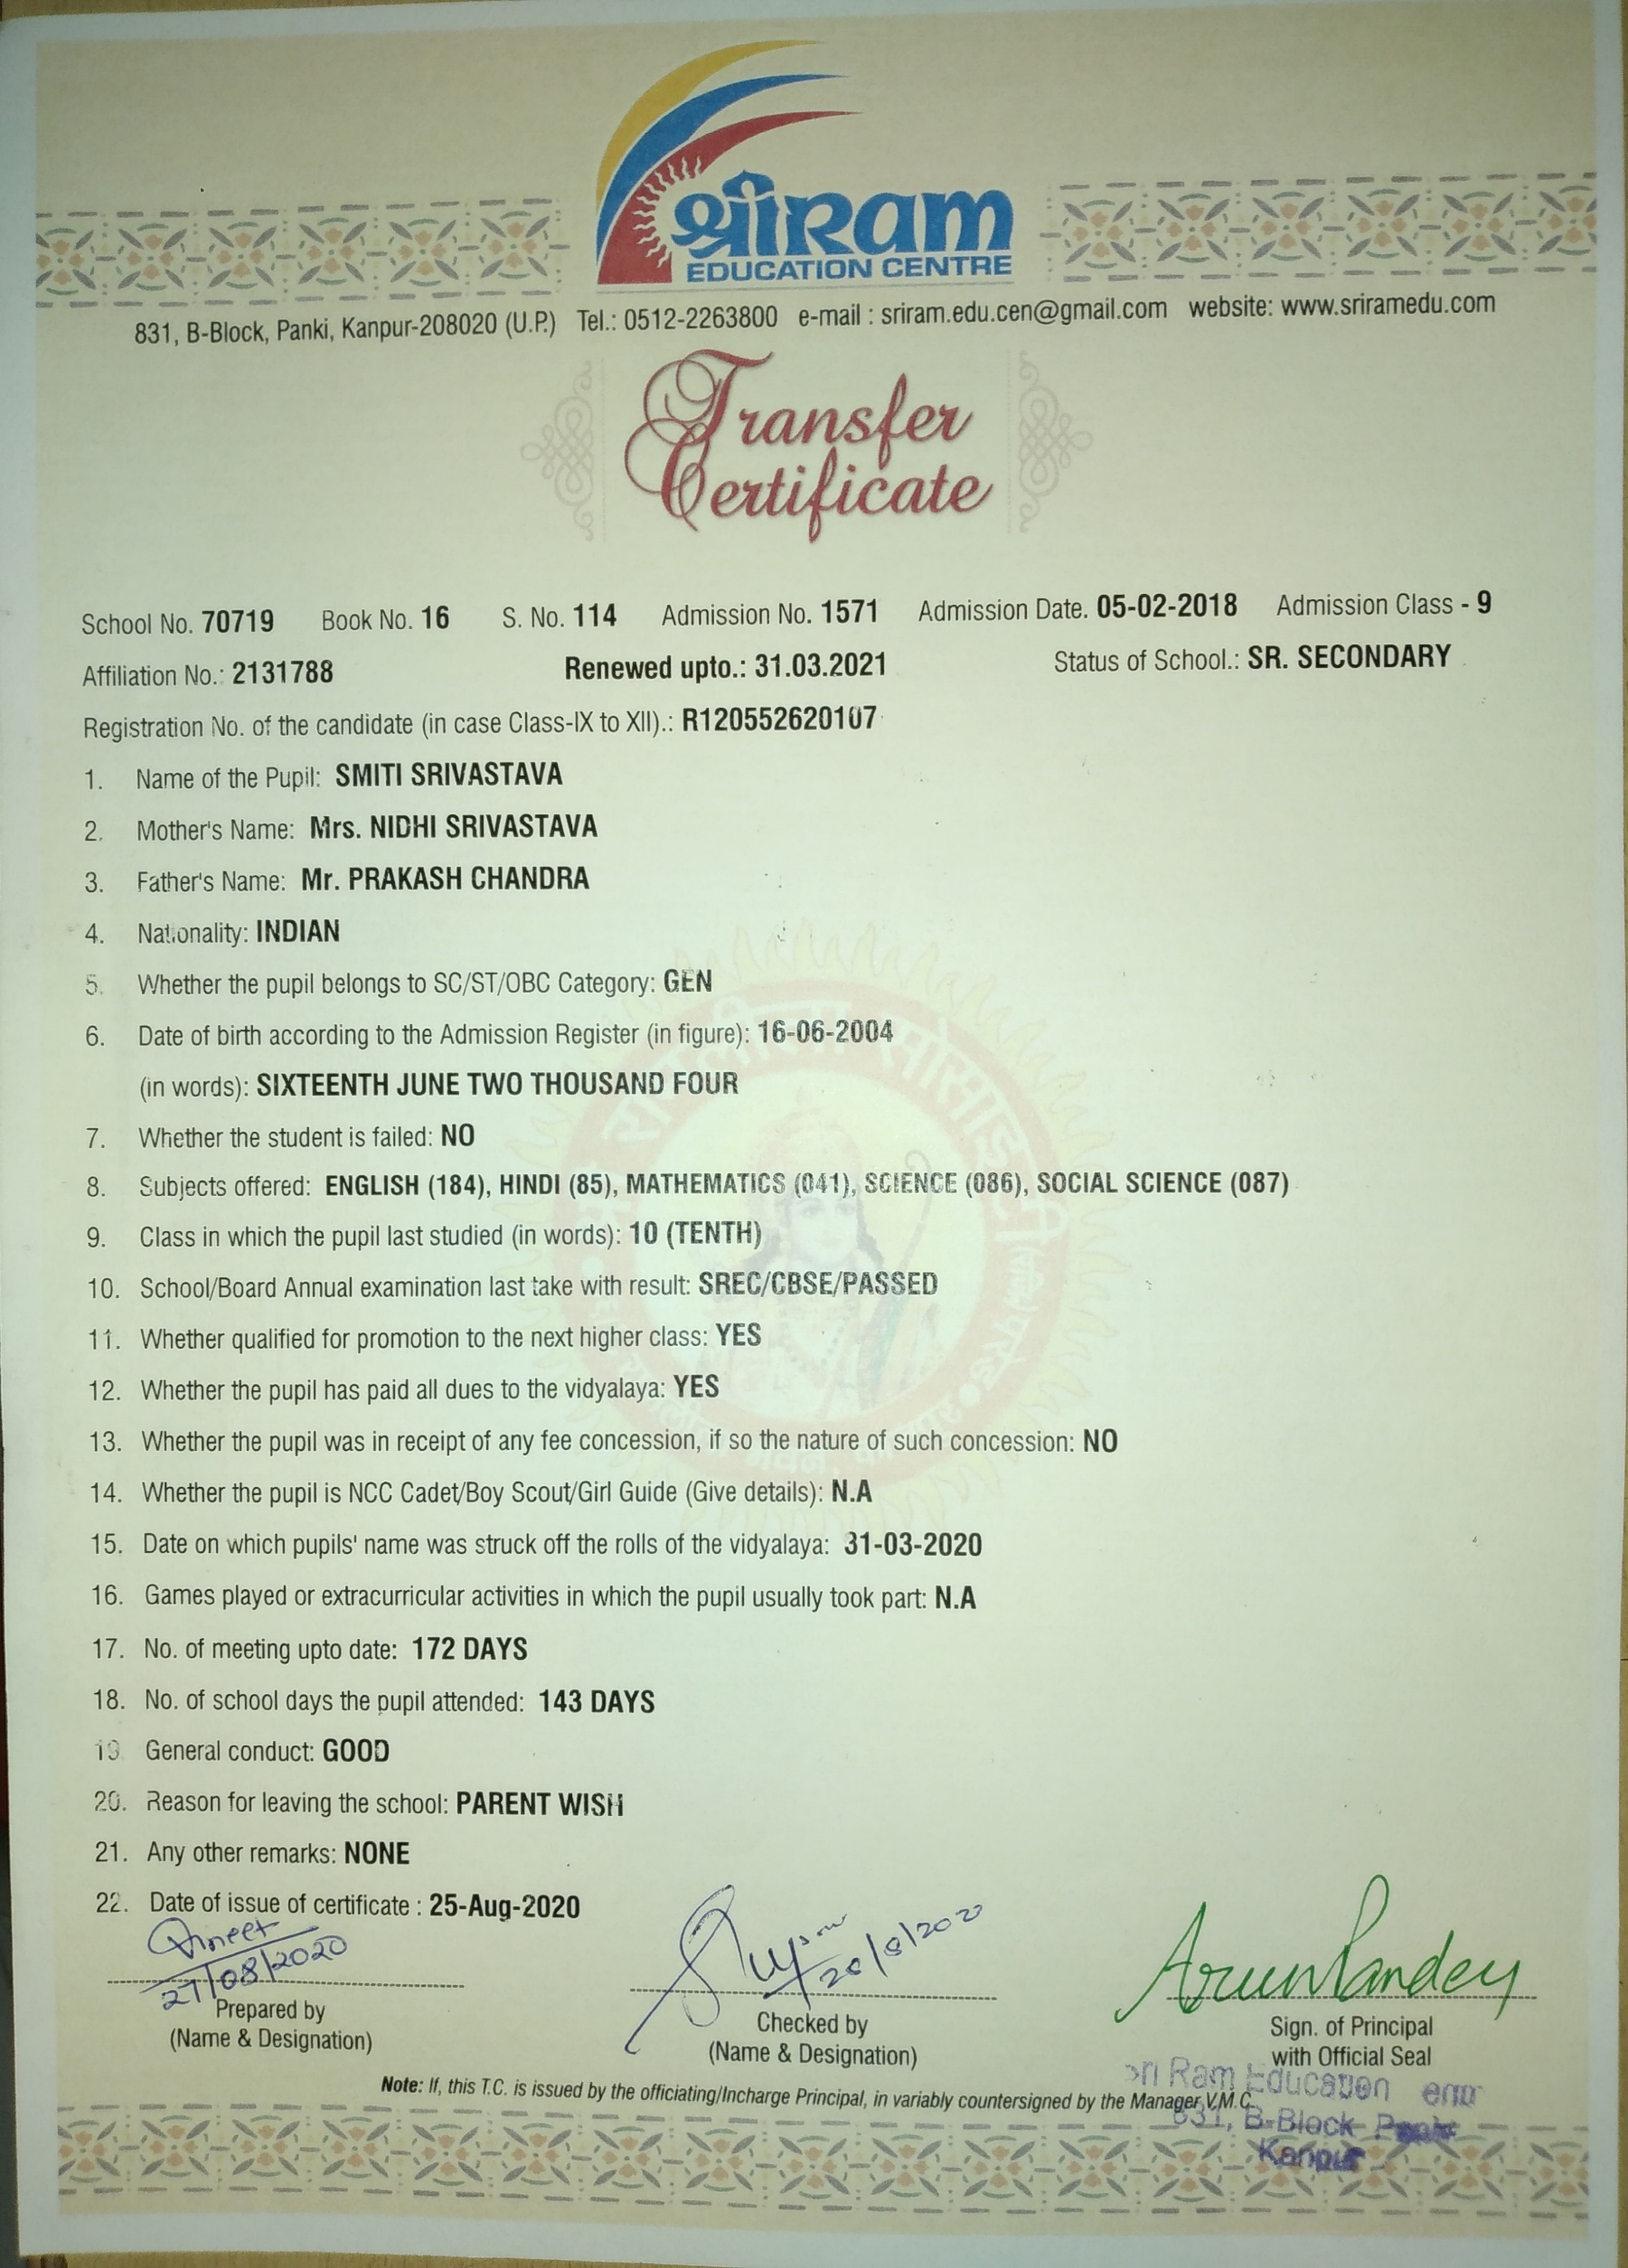 श्रीRam
EDUCATION CENTRE
831, B-Block, Panki, Kanpur-208020 (U.P.) Tel.: 0512-2263800 e-mail : sriram.edu.cen@gmail.com website: www.sriramedu.com
Transfer
Certificate
School No. 70719 Book No. 16 S. No. 114 Admission No. 1571 Admission Date. 05-02-2018 Admission Class - 9
Affiliation No.: 2131788 Renewed upto.: 31.03.2021 Status of School.: SR. SECONDARY
Registration No. of the candidate (in case Class-IX to XII).: R120552620107
1. Name of the Pupil: SMITI SRIVASTAVA
2. Mother's Name: Mrs. NIDHI SRIVASTAVA
3. Father's Name: Mr. PRAKASH CHANDRA
4. Nationality: INDIAN
5. Whether the pupil belongs to SC/ST/OBC Category: GEN
6. Date of birth according to the Admission Register (in figure): 16-06-2004
(in words): SIXTEENTH JUNE TWO THOUSAND FOUR
7. Whether the student is failed: NO
8. Subjects offered: ENGLISH (184), HINDI (85), MATHEMATICS (041), SCIENCE (086), SOCIAL SCIENCE (087)
9. Class in which the pupil last studied (in words): 10 (TENTH)
10. School/Board Annual examination last take with result: SREC/CBSE/PASSED
11. Whether qualified for promotion to the next higher class: YES
12. Whether the pupil has paid all dues to the vidyalaya: YES
13. Whether the pupil was in receipt of any fee concession, if so the nature of such concession: NO
14. Whether the pupil is NCC Cadet/Boy Scout/Girl Guide (Give details): N.A
15. Date on which pupils' name was struck off the rolls of the vidyalaya: 31-03-2020
16. Games played or extracurricular activities in which the pupil usually took part: N.A
17. No. of meeting upto date: 172 DAYS
18. No. of school days the pupil attended: 143 DAYS
19. General conduct: GOOD
20. Reason for leaving the school: PARENT WISH
21. Any other remarks: NONE
22. Date of issue of certificate : 25-Aug-2020
27/08/2020
Arun Pandey
Prepared by
(Name & Designation)
Checked by
(Name & Designation)
Sign. of Principal
with Official Seal
Note: If, this T.C. is issued by the officiating/Incharge Principal, in variably countersigned by the Manager, V.M.C.
Ram Education
831, B-Block
Kanpur